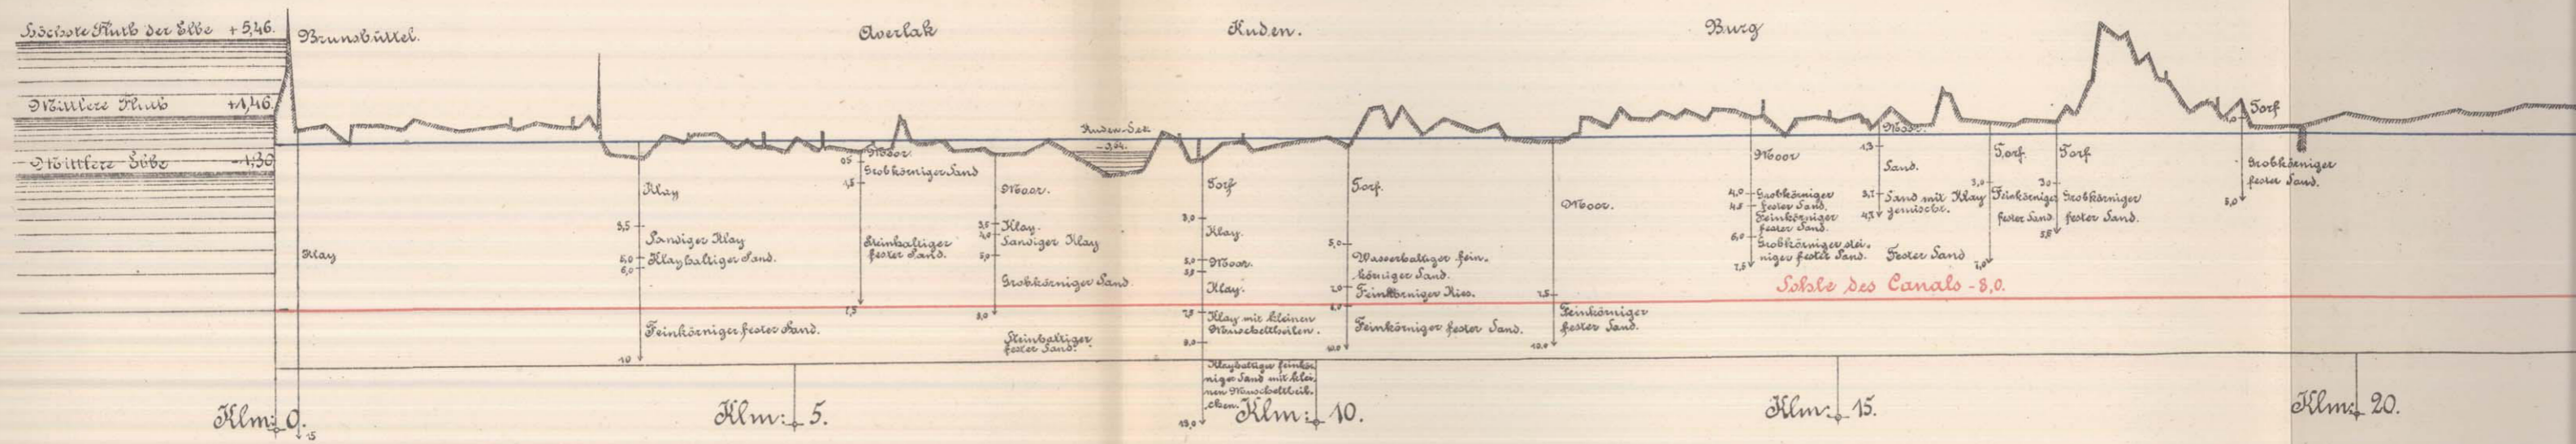 Höchste Fluth der Elbe +5,46.
Brunsbüttel.
Averlak
Kuden.
Burg
Mittlere Fluth +1,46.
Mittlere Ebbe -1,30
Kuden-See
Klay
Klay
5,5
Sandiger Klay
5,0
Klayhaltiger Sand.
6,0
Feinkörniger fester Sand.
10
Moor
0,5
Grobkörniger Sand
1,5
Steinhaltiger
fester Sand.
7,5
Moor.
3,5
Klay.
4,0
Sandiger Klay
5,0
Grobkörniger Sand
8,0
Steinhaltiger
fester Sand.
Torf
3,0
Klay.
5,0
Moor.
5,5
Klay.
7,5
Klay mit kleinen
Muscheltheilen.
9,0
Klayhaltiger feinkör-
niger Sand mit klei-
nen Muscheltheil-
chen.
13,0
Torf.
5,0
Wasserhaltiger fein-
körniger Sand.
7,0
Feinkörniger Kies.
8,0
Feinkörniger fester Sand.
10,0
Moor.
7,5
Feinkörniger
fester Sand.
10,0
Moor
4,0
Grobkörniger
fester Sand.
4,5
Feinkörniger
fester Sand.
6,0
Grobkörniger stei-
niger fester Sand.
7,5
Moor.
1,3
Sand.
3,7
Sand mit Klay
gemischt.
4,7
Fester Sand
Torf.
3,0
Feinkörniger
fester Sand
7,0
Torf
3,0
Grobkörniger
fester Sand.
5,8
Torf
Grobkörniger
fester Sand.
5,0
Sohle des Canals -8,0.
Klm: 0.
15
Klm: 5.
Klm: 10.
Klm: 15.
Klm: 20.